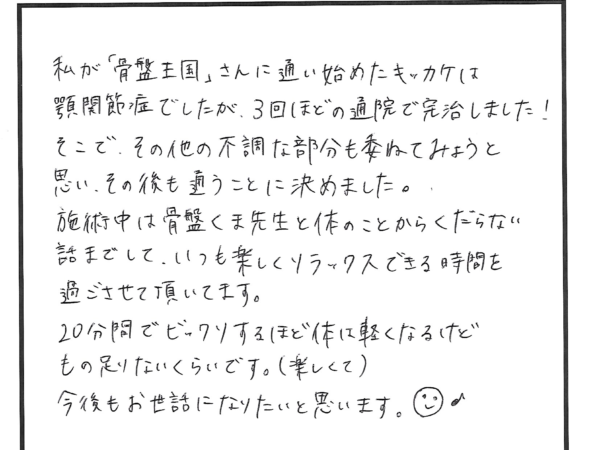 私が「骨盤王国」さんに通い始めたキッカケは
顎関節症でしたが、3回ほどの通院で完治しました！
そこで、その他の不調な部分も委ねてみようと
思い、その後も通うことに決めました。
施術中は骨盤くま先生と体のことからくだらない
話までして、いつも楽しくリラックスできる時間を
過ごさせて頂いてます。
20分間でビックリするほど体は軽くなるけど
もの足りないくらいです。(楽しくて)
今後もお世話になりたいと思います。☺♪